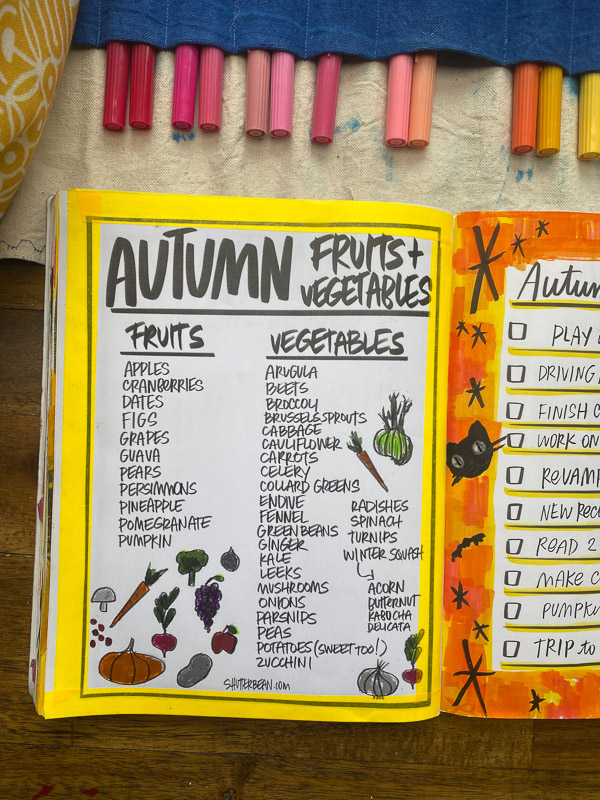 AUTUMN FRUITS + VEGETABLES
FRUITS
APPLES
CRANBORRIES
DATES
FIGS
GRAPES
GUAVA
PEARS
PERSIMMONS
PINEAPPLE
POMEGRANATE
PUMPKIN
VEGETABLES
ARUGULA
BEETS
BROCCOLI
BRUSSELSSPROUTS
CABBAGE
CAULIFLOWER
CARROTS
CELERY
COLLARD GREENS
ENDIVE
FENNEL
GREEN BEANS
GINGER
KALE
LEEKS
MUSHROOMS
ONIONS
PARSNIPS
PEAS
POTATOES (SWEET TOO!)
ZUCCHINI
RADISHES
SPINACH
TURNIPS
WINTER SQUASH
ACORN
BUTTERNUT
KABOCHA
DELICATA
SHUTTERBEAN.COM
Autum
PLAY
DRIVING
FINISH
WORK ON
REVAMP
NEW
READ 2
MAKE
PUMPK
TRIP to